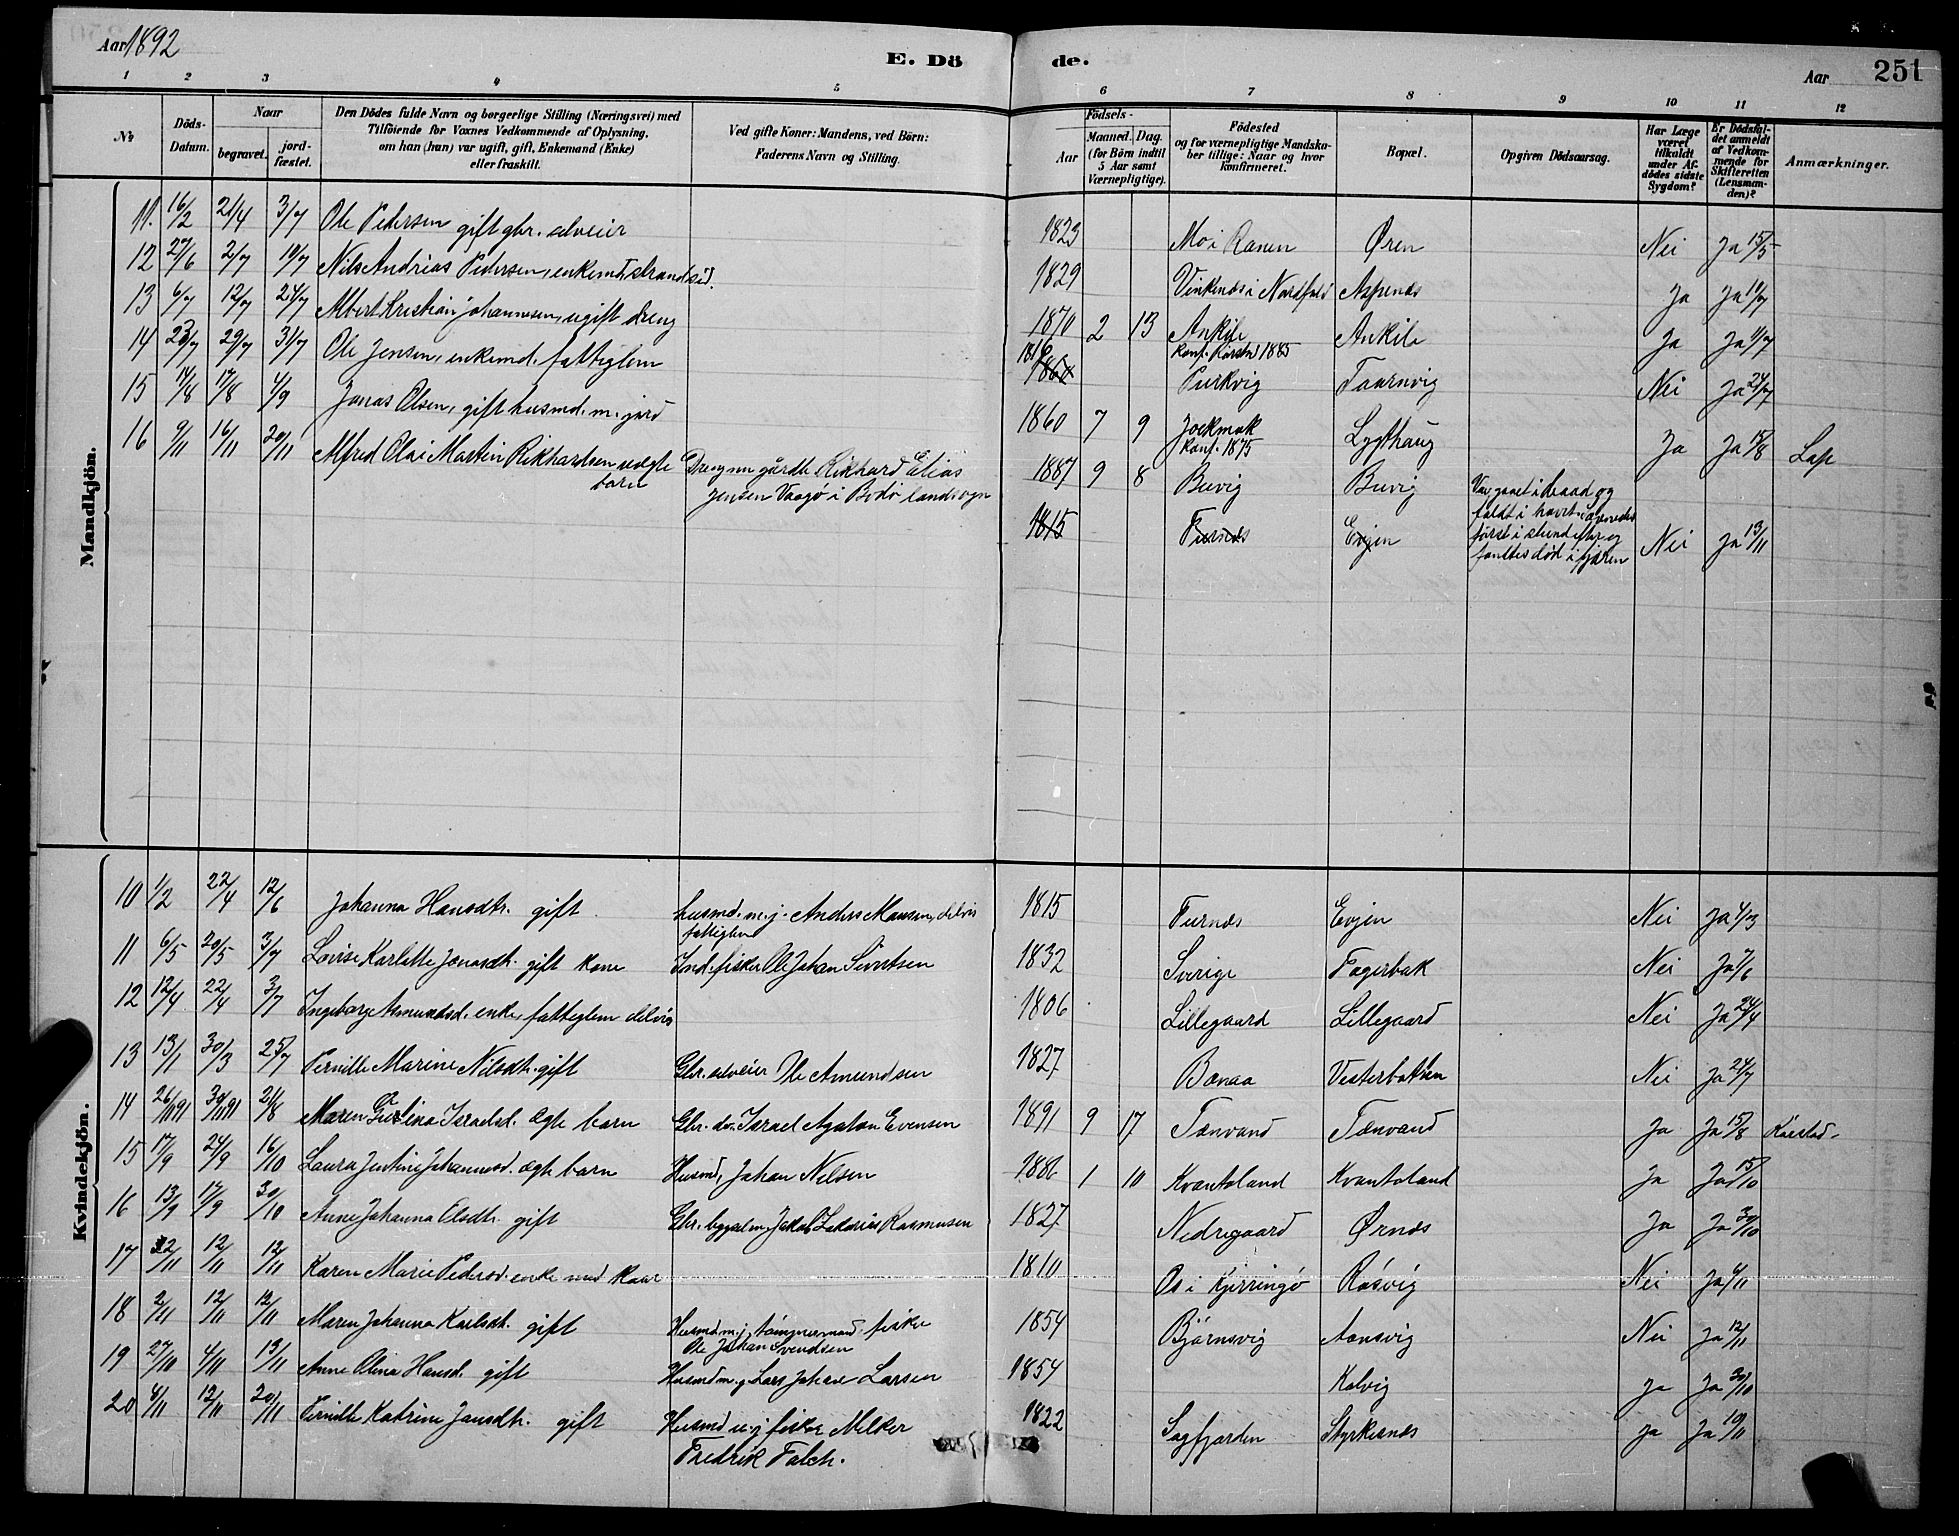 Aar 1892
E. Dö de.
Aar 251
1 2 3 4 5 6 7 8 9 10 11 12
No
Döds-Datum.
Naar begravet. jordfæstet.
Den Dödes fulde Navn og borgerlige Stilling (Næringsvei) med
Tilföiende for Voxnes Vedkommende af Oplysning,
om han (hun) var ugift, gift, Enkemand (Enke)
eller fraskilt.
Ved gifte Koner: Mandens, ved Börn:
Faderens Navn og Stilling.
Födsels-
Aar Maaned. Dag.
(for Börn indtil
5 Aar samt
Værnepligtige).
Födested
og for værnepligtige Mandska-
ber tillige: Naar og hvor
konfirmeret.
Bopæl.
Opgiven Dödsaarsag.
Har Læge
været
tilkaldt
under Af-
dödes sidste
Sygdom?
Er Dödsfal-
det anmeldt
af Vedkom-
mende for
Skifteretten
(Lensman-
den)?
Anmærkninger.
Mandkjön.
11. 16/2 21/4 3/7 Ole Pedersen gift gbr. selveier 1823 Mo i Ranen Øren Nei Ja 15/5
12 27/6 2/7 10/7 Nils Andrias Pedersen, enkemd, strandsid. 1829 Vinkenes i Nordfold Aspenes Ja Ja 10/7
13 6/7 12/7 24/7 Albert Kristian Johannesen, ugift dreng 1870 2 13 Ankile Ankile Ja Ja 11/7
Konf. Kjirsted 1885
14 23/7 29/7 31/7 Ole Jensen, enkemd. fattiglem 1816 1860 Purkvig Taarnvig Nei Ja 24/7
15 14/8 17/8 4/9 Jonas Olsen, gift husmd. m. jord 1860 7 9 Jockmok Lygthaug Ja Ja 15/8 Lap
Konf. 1875
16 9/11 16/11 20/11 Alfred Olai Martin Rikhardsen uægte Drengen gårdb. Rikhard Elias 1887 9 8 Buvig Buvig
barn Jensen Vaagø i Bodø landsogn
Var gaaet i baad og
faldt i havet,
først i stund efter og
fandtes død i fjæren Nei Ja 13/11
1815 Furnes Evjen
Kvindekjön.
10 1/2 22/4 12/6 Johanna Hansdtr. gift husmd. m. j. Anders Monsen, delvis 1815 Furnes Evjen Nei Ja 4/3
fattiglem
11 6/5 20/5 3/7 Lovise Karlotte Jonasdt. gift kone Ind. fisker Ole Johan Sivertsen 1832 Sverige Fagerbak Nei Ja 7/6
12 12/4 22/4 3/7 Ingeborg Asmundsd. enke, fattiglem delvis 1806 Lillegaard Lillegaard Nei Ja 24/4
13 13/1 30/3 25/7 Pernille Marine Nilsdtr. gift Gbr. selveier Ole Amundsen 1827 Bonaa Vesterbotten Nei Ja 24/7
14 26/11 91 30/11 91 21/8 Maren Gurlina Israelsd. ægte barn Gbr. do. Israel Agaton Evensen 1891 9 17 Tønvand Tønvand Ja Ja 15/8 Kirsted
15 17/9 24/9 16/10 Laura Jentine Johannesd. ægte barn Husmd, Johan Nilsen 1886 1 10 Kvantoland Kvantoland Ja Ja 15/10
16 13/9 17/9 30/10 Anne Johanna Olsdtr. gift Gbr. bygselm. Jakob Zakarias Rasmusen 1827 Nedregaard Ørnes Ja Ja 30/10
17 2/11 12/11 12/11 Karen Marie Pedersd. enke med kaar 1810 Os i Kjerringø Røsvig Nei Ja 4/11
18 2/11 12/11 12/11 Maren Johanna Karlsdtr. gift Husmd m. j, tømmermand fisker 1854 Bjørnsvig Aonsvig Nei Ja 12/11
Ole Johan Svendsen
19 27/10 4/11 13/11 Anne Olina Hansd. gift Husmd m. j Lars Johan Larsen 1854 Kalvig Ja Ja 30/10
20 4/11 12/11 20/11 Pernille Katrine Jansdtr. gift Husmd u. j fisker Melker 1822 Sagfjorden Styrkesnes Ja Ja 10/11
Fredrik Falch.